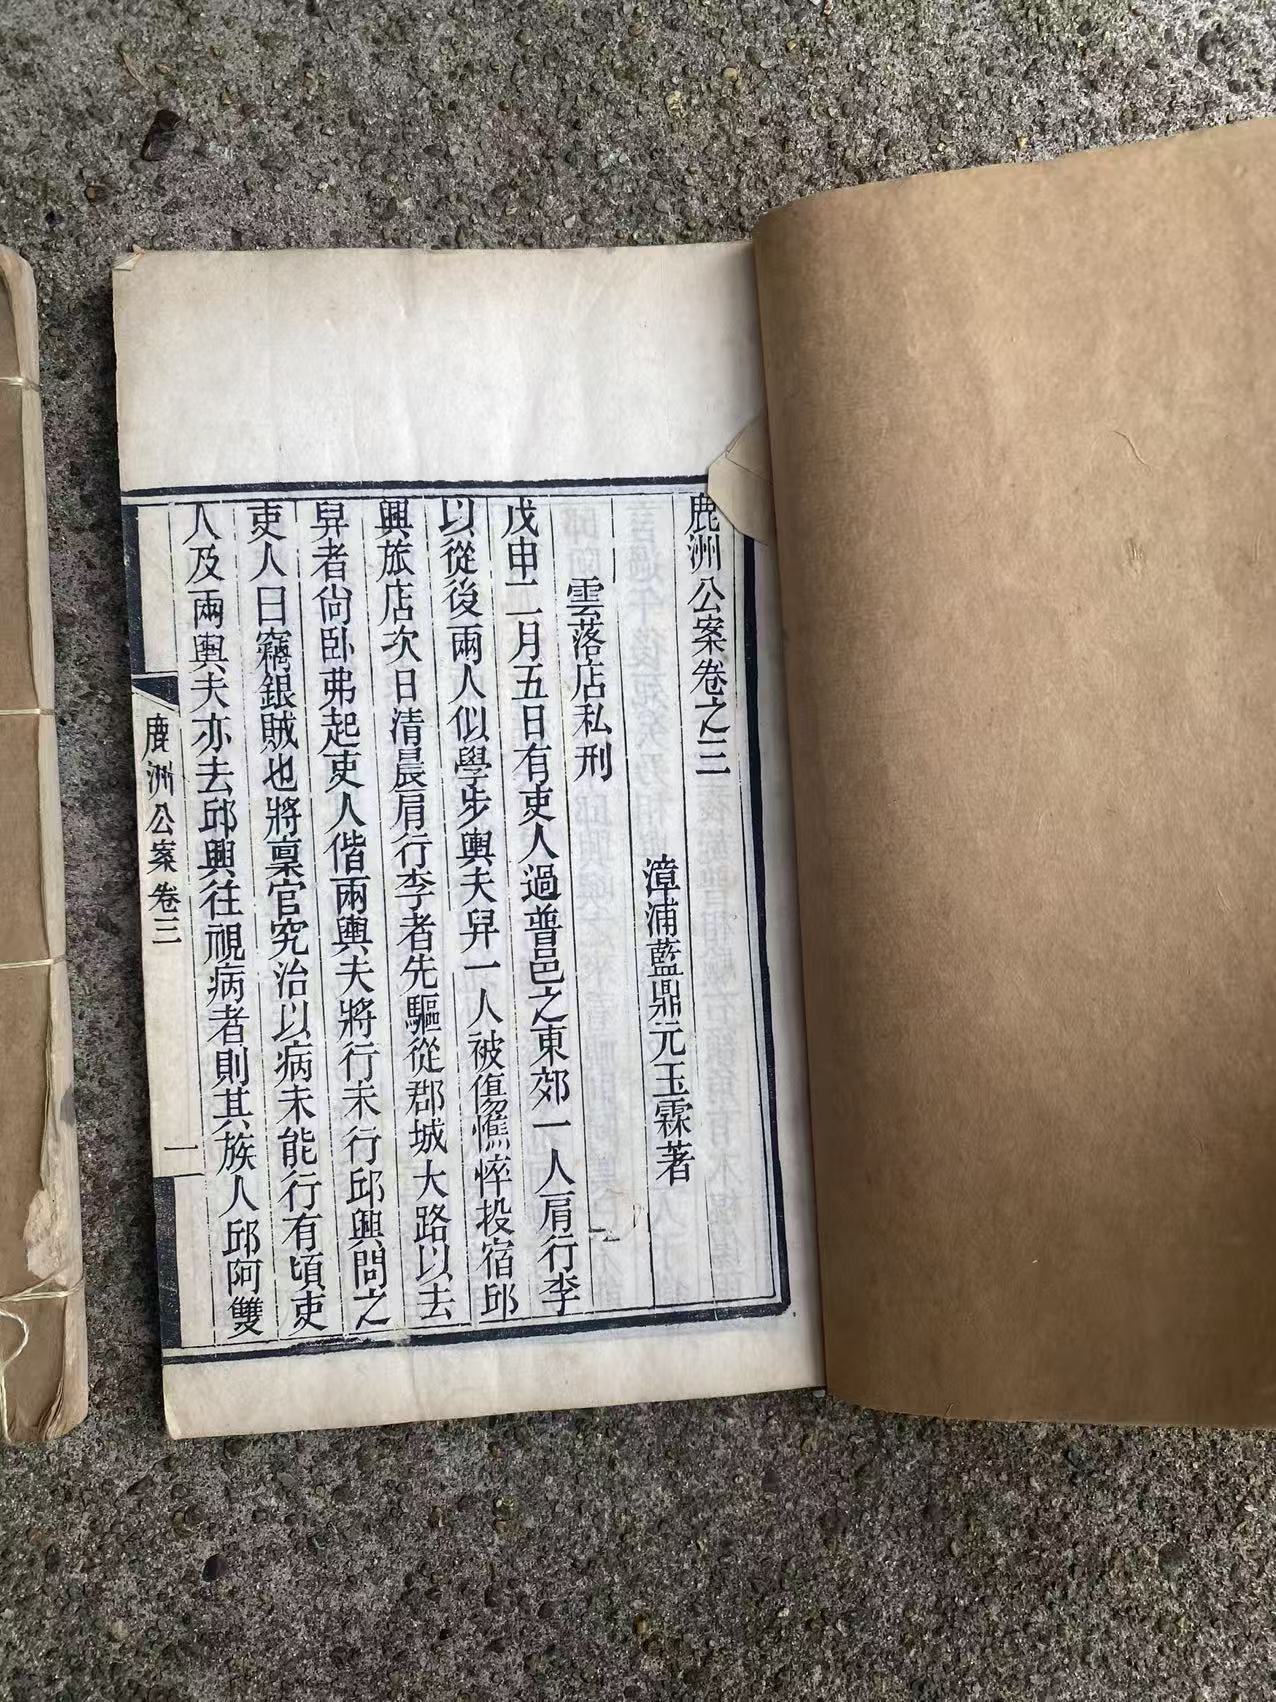 鹿洲公案卷之三
漳浦藍鼎元玉霖著
雲落店私刑
戊申二月五日有吏人過普邑之東郊一人肩行李
以從後兩人似學步輿夫舁一人被傷憔悴投宿邱
興旅店次日清晨肩行李者先驅從郡城大路以去
舁者尙卧弗起吏人偕兩輿夫將行未行邱興問之
吏人曰竊銀賊也將稟官究治以病未能行有頃吏
人及兩輿夫亦去邱興往視病者則其族人邱阿雙
鹿洲公案 卷三
一